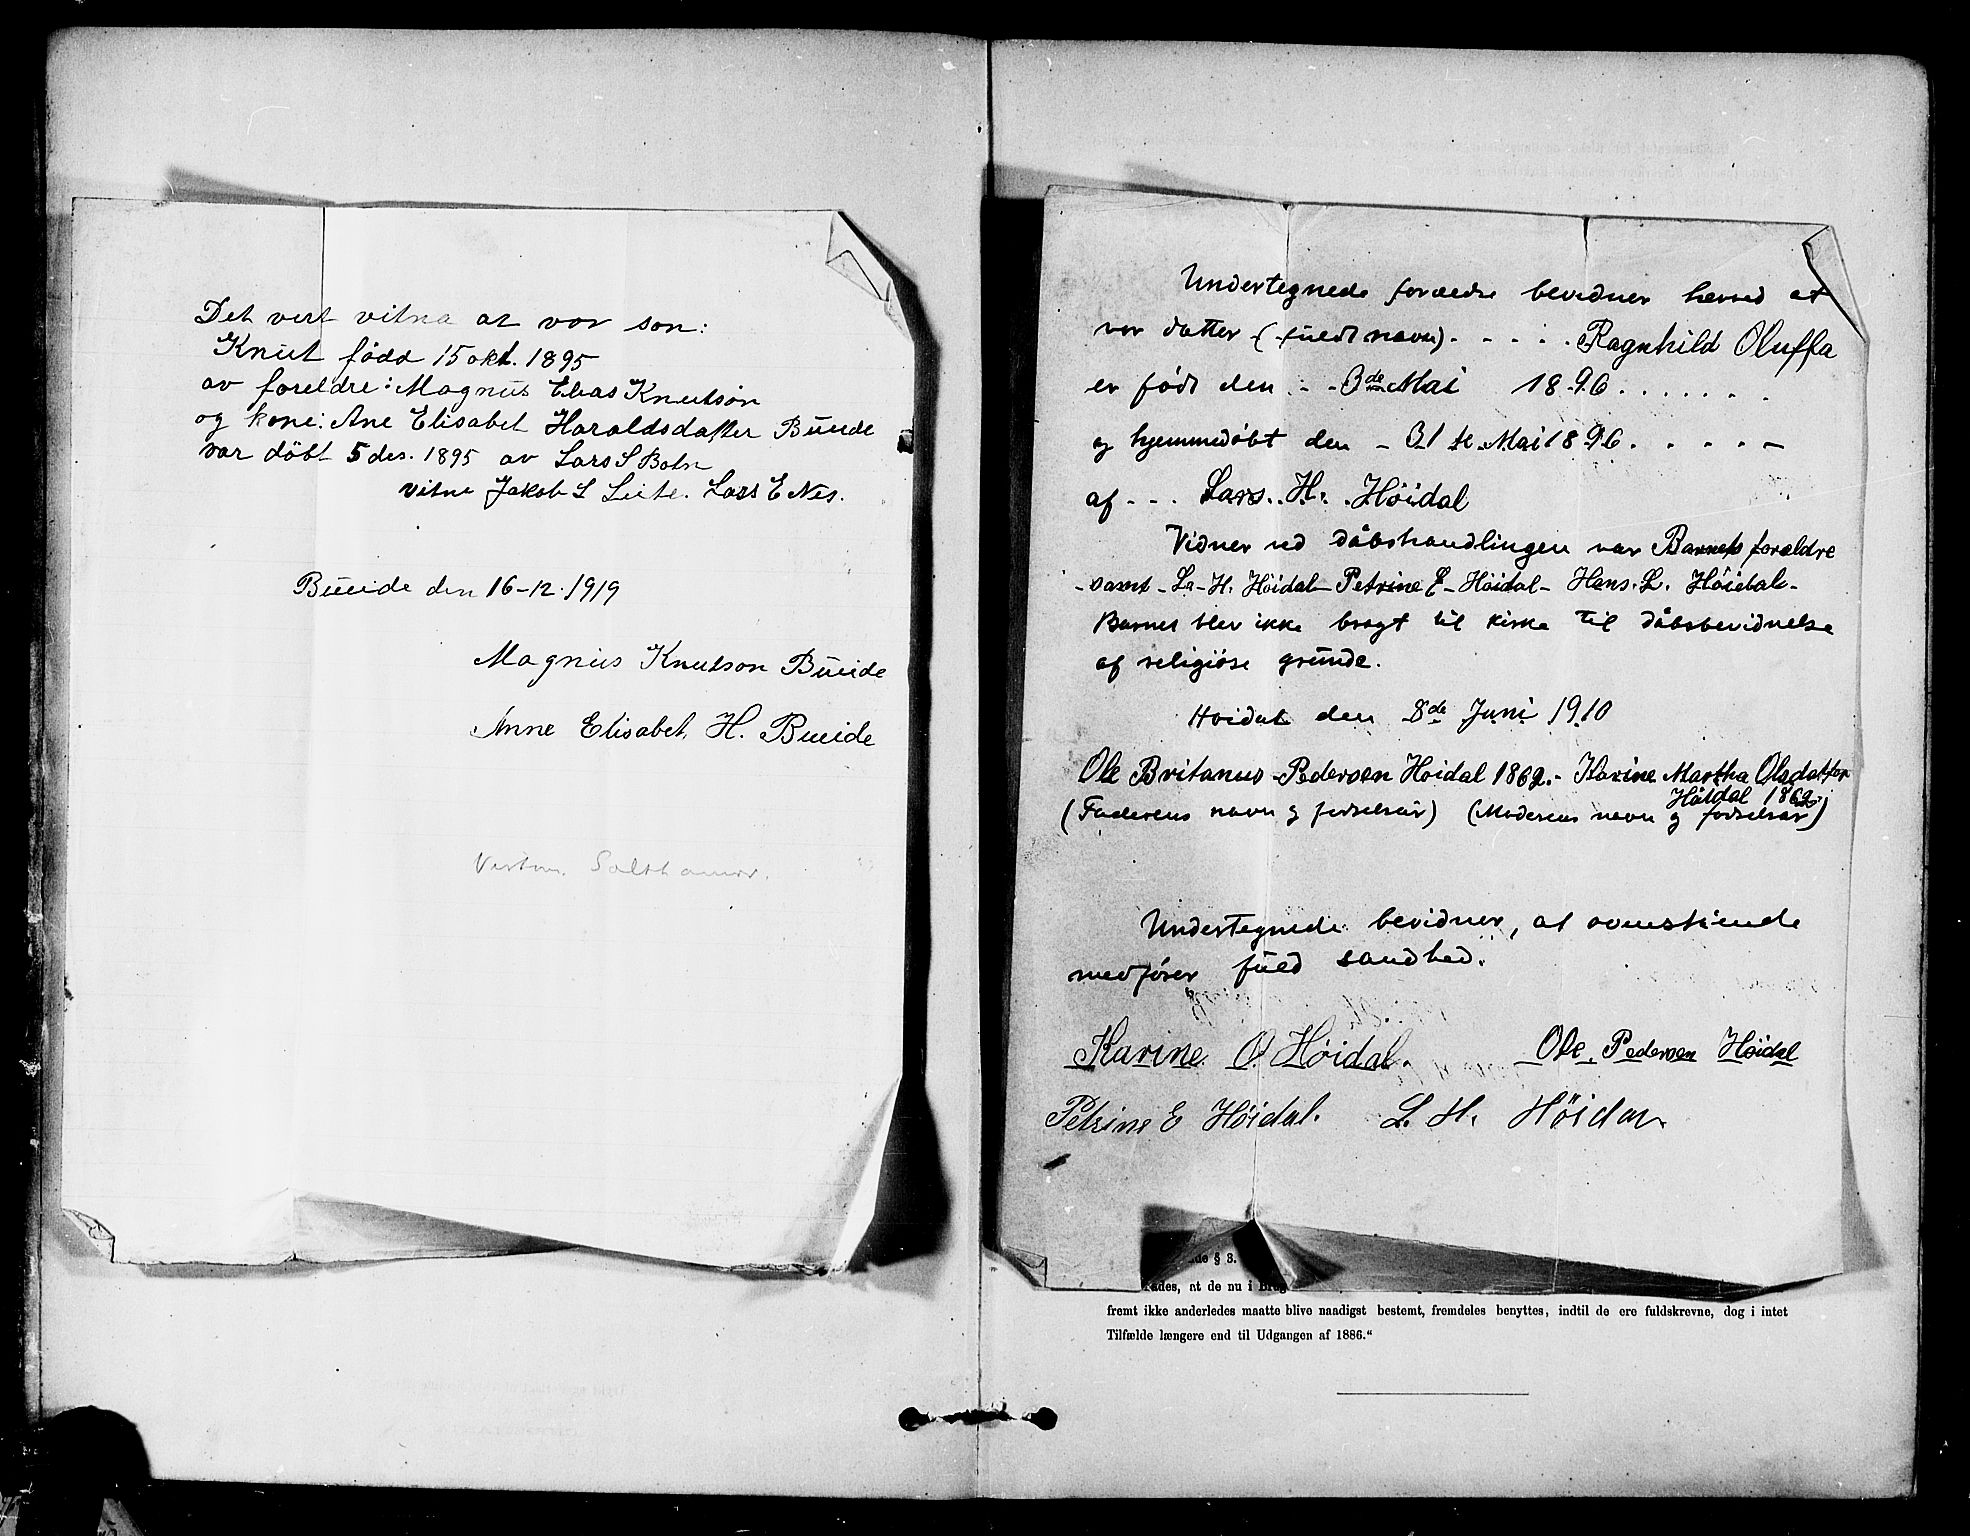 Det vert vitna at vor son:
Knut fødd 15 okt. 1895
av foreldre: Magnus Elias Knutson
og kone: Ane Elisabet Haraldsdatter Bueide
var døbt 5 des. 1895 av Lars S Botn
vitne Jakob S Leite. Lars E Nes.
Bueide den 16-12-1919
Magnus Knutson Bueide
Anne Elisabet H. Bueide
Undertegnede forældre bevidner herved at
vor datter (fuldt navn) . . . . . Ragnhild Oluffa
er født den . - 3de Mai 1896 . . . . . . .
og hjemmedøbt den - 31te Mai 1896 . . . . . -
af - - - Lars. H. Höidal
Vidner ved dåbshandlingen var Barnets forældre
- samt - L- H. Höidal - Petrine E - Höidal - Hans. L. Höidal -
Barnet blev ikke bragt til kirke til dåbsbevidnelse
af religiøse grunde.
Høidal den 8de Juni 1910
Ole Britanus Pedersen Høidal 1862. - Karine Martha Olsdatter
Høidal 1862.
(Faderens navn og fødselsår) (Moderens navn og fødselsår)
Undertegnede bevidner, at ovenstående
medfører fuld sandhed.
Karine O. Høidal. Ole. Pedersen Høidal
Petrine E Höidal. L. H. Höidal
§ 3.
at de nu i
fremt ikke anderledes maatte blive naadigst bestemt, fremdeles benyttes, indtil de ere fuldskrevne, dog i intet
Tilfælde længere end til Udgangen af 1886.“